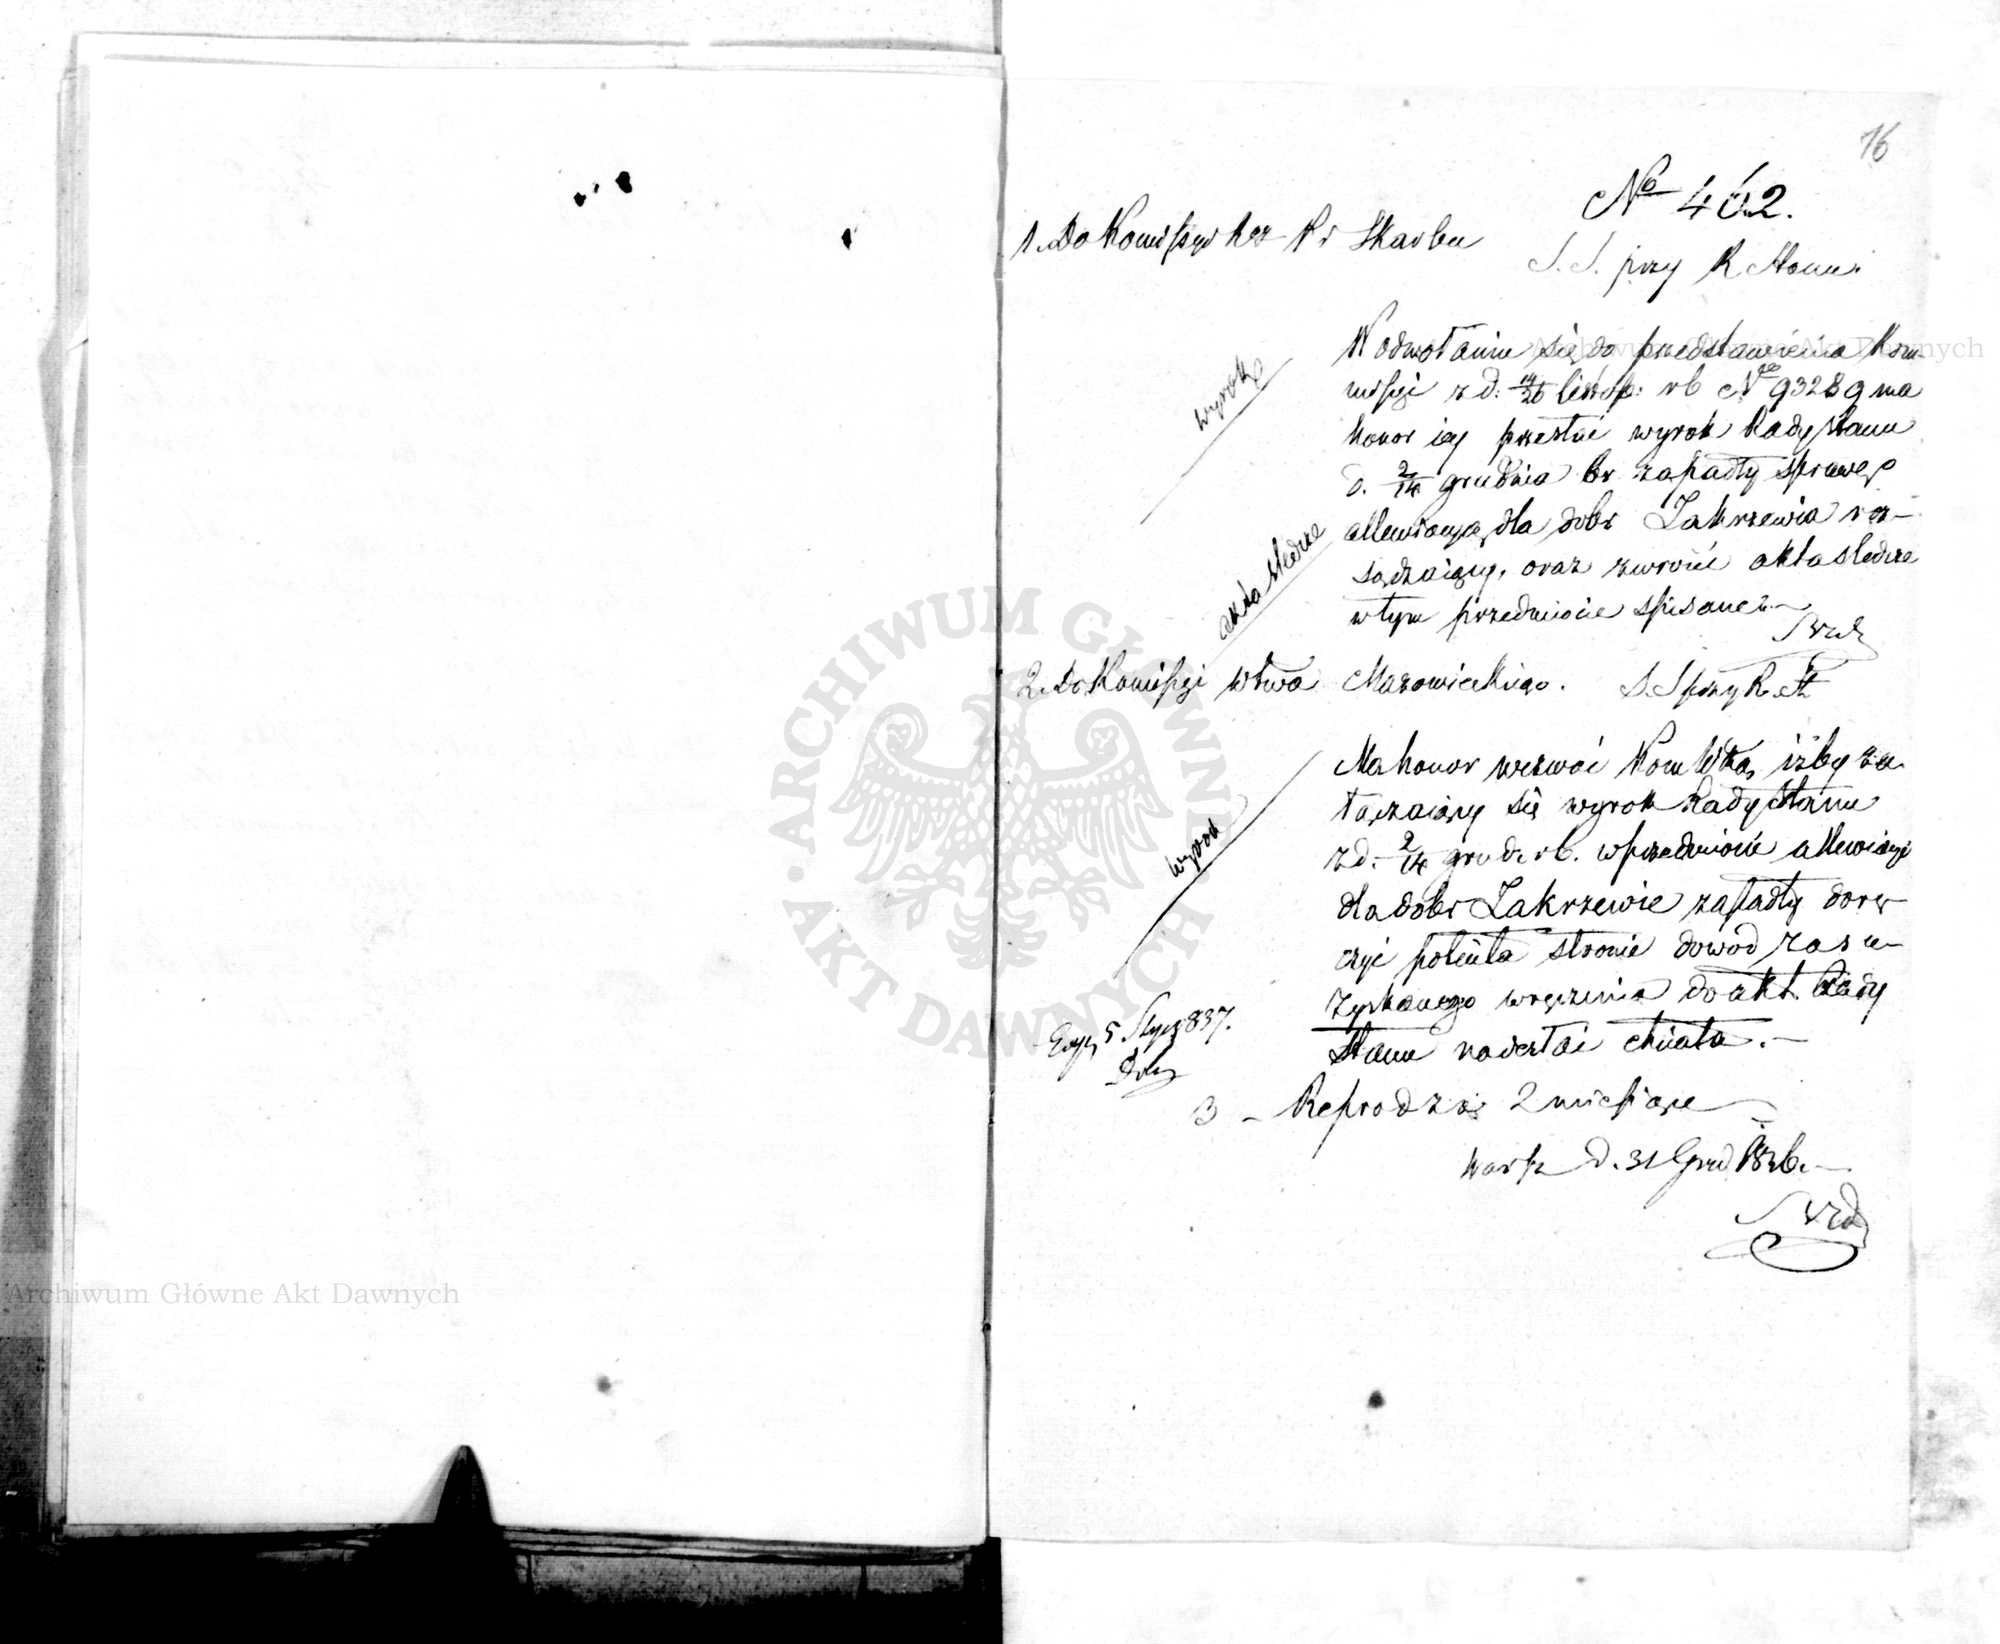 76
No 402.
1. Do Komissyi Rz P i Skarbu
S. S. przy R Stanu
W odwołaniu się do przedstawienia Kom-
missyi z d. 14/26 listop: rb No 93289 ma
honor iey przesłać wyrok Rady Stanu
d. 2/14 grudnia br zapadły sprawę
allewiacyą dla dobr Zakrzewia roz-
sądzaiący, oraz zwrócić akta sledcze
w tym przedmiocie spisane.
wyrok
akta sledcze
2. Do Komissyi Wtwa Mazowieckiego.
S. S przy R. St
Ma honor wezwać Kom Wtką, iżby za-
łączaiący się wyrok Rady Stanu
z d. 2/14 grud. rb. w przedmiocie allewiacyi
dla dobr Zakrzewie zapadły dorę-
czyć poleciła stronie dowod zas u-
zyskanego wręczenia do akt Rady
Stanu nadesłać chciała.
wyrok
Exp. 5 Stycz 837.
3 - Reprod za 2 miesiące
Warsz d. 31 Grud 1836.
Archiwum Główne Akt Dawnych
Archiwum Główne Akt Dawnych
ARCHIWUM GŁÓWNE
AKT DAWNYCH